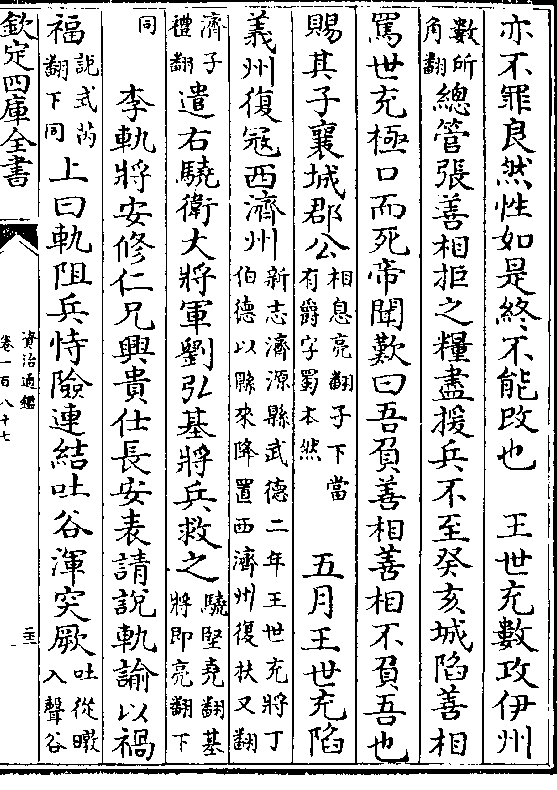 亦不罪良然性如是終不能改也　王世充數攻伊州
數所角翻總管張善相拒之糧盡援兵不至癸亥城陷善相
罵世充極口而死帝聞歎曰吾負善相善相不負吾也
賜其子襄城郡公相息亮翻子下當有爵字蜀本然　五月王世充陷
義州復寇西濟州新志濟源縣武德二年王世充將丁伯德以縣來降置西濟州復扶又翻
濟子禮翻遣右驍衛大將軍劉弘基將兵救之驍堅堯翻基將即亮翻下
同　李軌將安修仁兄興貴仕長安表請說軌諭以禍
福說式芮翻下同上曰軌阻兵恃險連結吐谷渾突厥吐從暾入聲谷
欽定四庫全書
資治通鑑
卷一百八十七
二十三